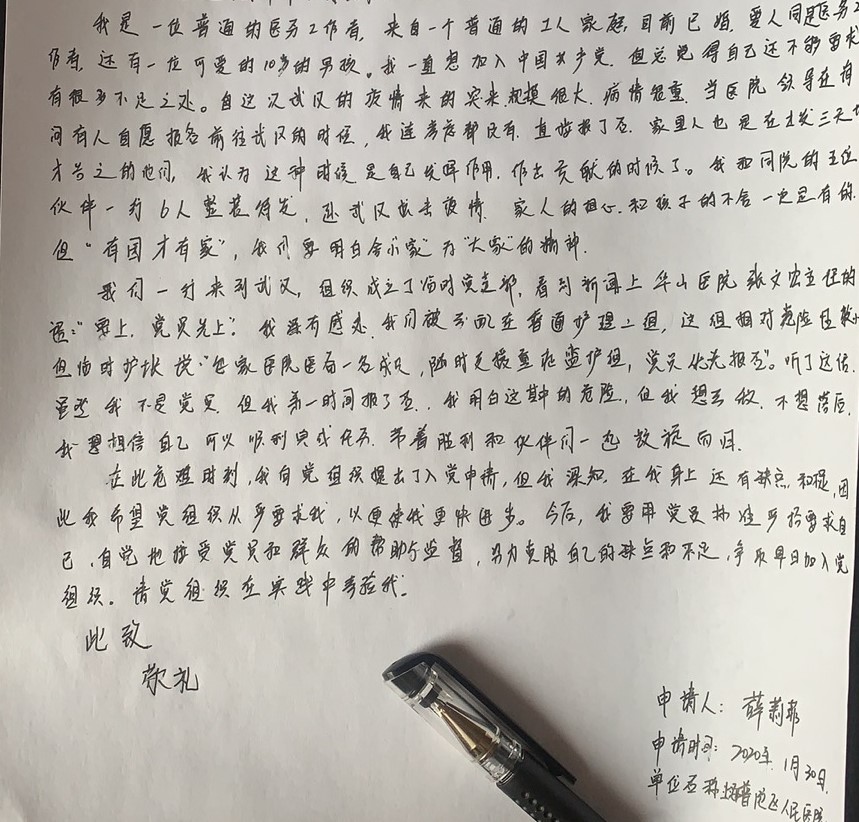 我是一位普通的医务工作者，来自一个普通的工人家庭，目前已婚，爱人同是医务工
作者，还有一位可爱的10岁的男孩。我一直想加入中国共产党，但总觉得自己还不够要求
有很多不足之处。自这次武汉的疫情来的突来规模很大，病情严重，当医院领导在有
问有人自愿报名前往武汉的时候，我连考虑都没有，直接报了名。家里人也是在出发三天
才告之的他们，我认为这种时候是自己发挥作用，作出贡献的时候了。我和同院的五位
伙伴一行6人整装待发，赴武汉出去疫情，家人的担心和孩子的不舍一定是有的，
但“有国才有家”，我们要明白舍“小家”为“大家”的精神.
我们一行来到武汉，组织成立了临时党支部，看到新闻上华山医院张文宏主任的
话：“要上，党员先上”. 我深有感处，我们被分配在普通护理二组，这组相对危险性较小
但临时护长说：“每家医院医局一名成员，随时支援重症监护组，党员优先报名”。听了这话，
虽然我不是党员，但我第一时间报了名. 我明白这其中的危险，但我想去做，不想落后，
我要相信自己可以顺利完成任务，带着胜利和伙伴们一起凯旋而归.
在此危难时刻，我向党组织提出了入党申请，但我深知，在我身上还有缺点和不足，因
此我希望党组织从严要求我，以便使我更快进步。今后，我要用党员标准严格要求自
己，自觉地接受党员和群众的帮助与监督，努力克服自己的缺点和不足，争取早日加入党
组织。请党组织在实践中考验我.
此致
敬礼
申请人：薛莉菲
申请时间：2020年1月30日
单位名称：上海普陀区人民医院